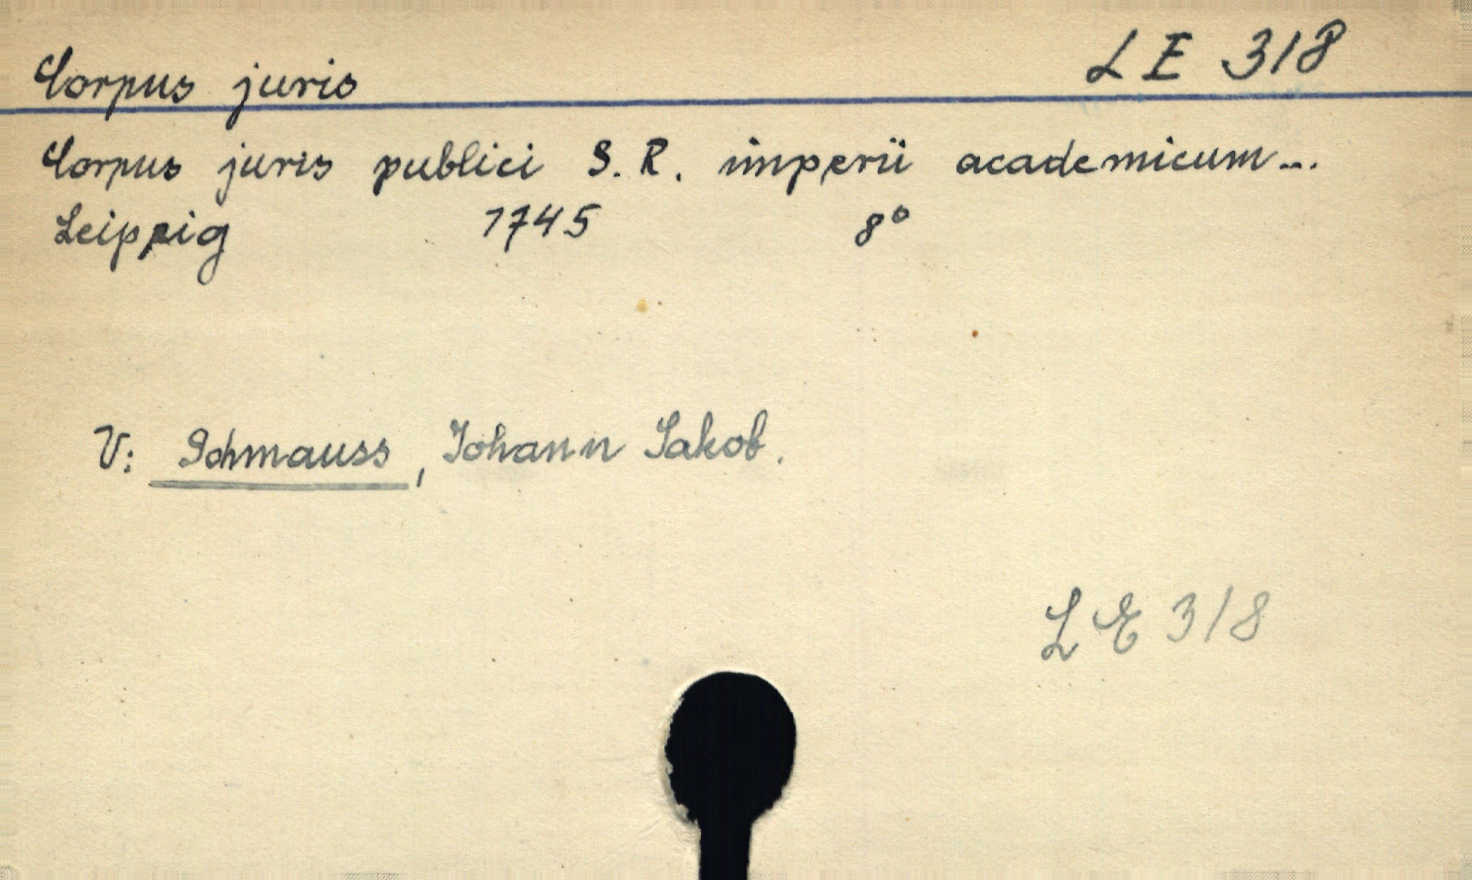 Corpus juris LE 318
Corpus juris publici S. R. imperii academicum...
Leipzig 1745 8°
V: Schmauss, Johann Jakob.
LE 318